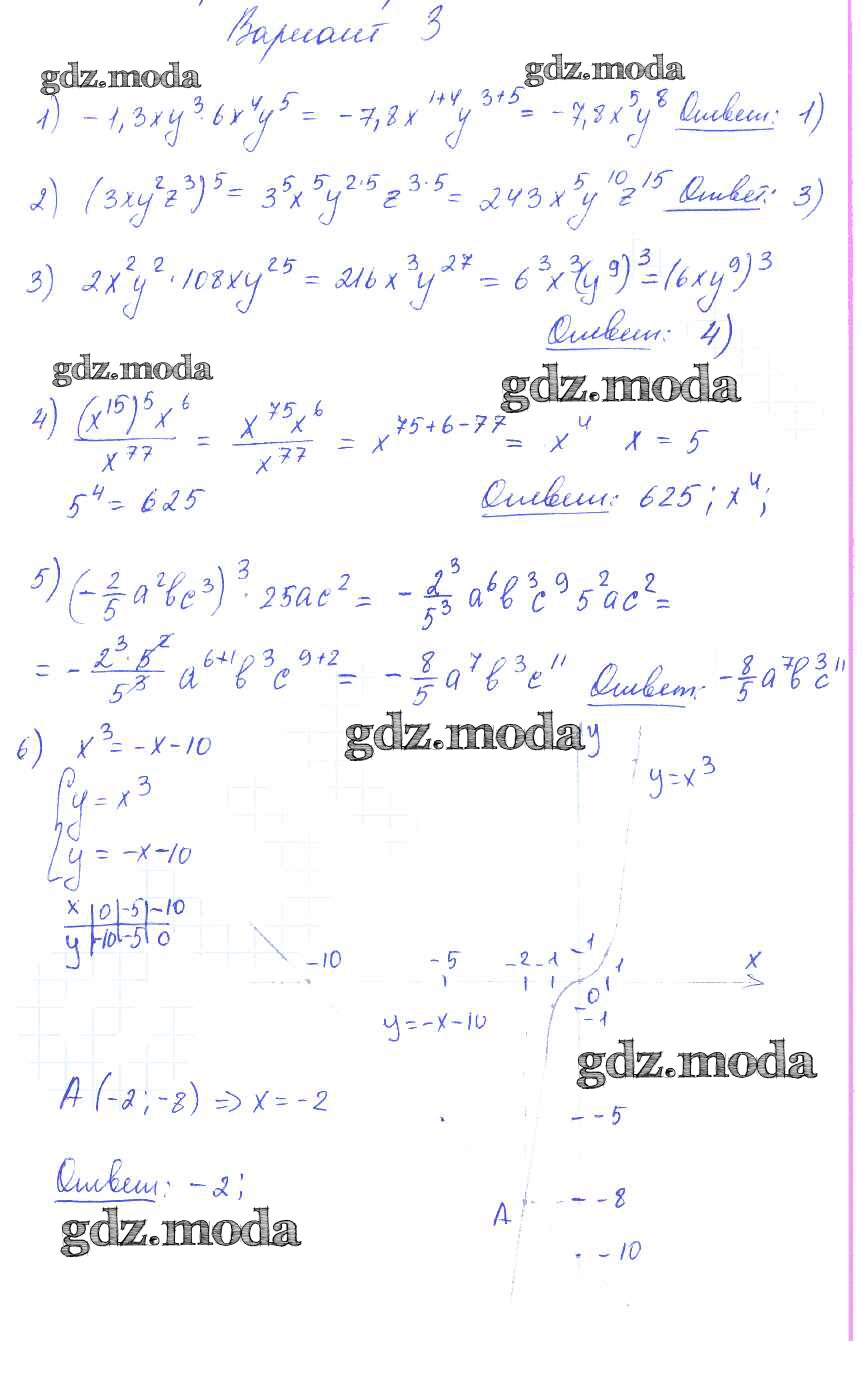 Вариант 3
gdz.moda gdz.moda
1) -1,3xy³·6x⁴y⁵ = -7,8x¹⁺⁴y³⁺⁵ = -7,8x⁵y⁸ Ответ: 1)
2) (3xy²z³)⁵ = 3⁵x⁵y²·⁵z³·⁵ = 243x⁵y¹⁰z¹⁵ Ответ: 3)
3) 2x²y²·108xy²⁵ = 216x³y²⁷ = 6³x³(y⁹)³ = (6xy⁹)³
Ответ: 4)
gdz.moda gdz.moda
4) (x¹⁵)⁵x⁶/x⁷⁷ = x⁷⁵x⁶/x⁷⁷ = x⁷⁵⁺⁶⁻⁷⁷ = x⁴ x = 5
5⁴ = 625 Ответ: 625; x⁴;
5) (-2/5 a²bc³)³·25ac² = -2³/5³ a⁶b³c⁹5²ac² =
= -2³·5²/5³ a⁶⁺¹b³c⁹⁺² = -8/5 a⁷b³c¹¹ Ответ: -8/5 a⁷b³c¹¹
gdz.moda
6) x³ = -x-10
y
y = x³
{y = x³
y = -x-10
x 0 -5 -10
y -10 -5 0
-10 -5 -2 -1 0 1 x
1
-1
y = -x-10
gdz.moda
A (-2; -8) => x = -2
-5
Ответ: -2;
A -8
gdz.moda
-10